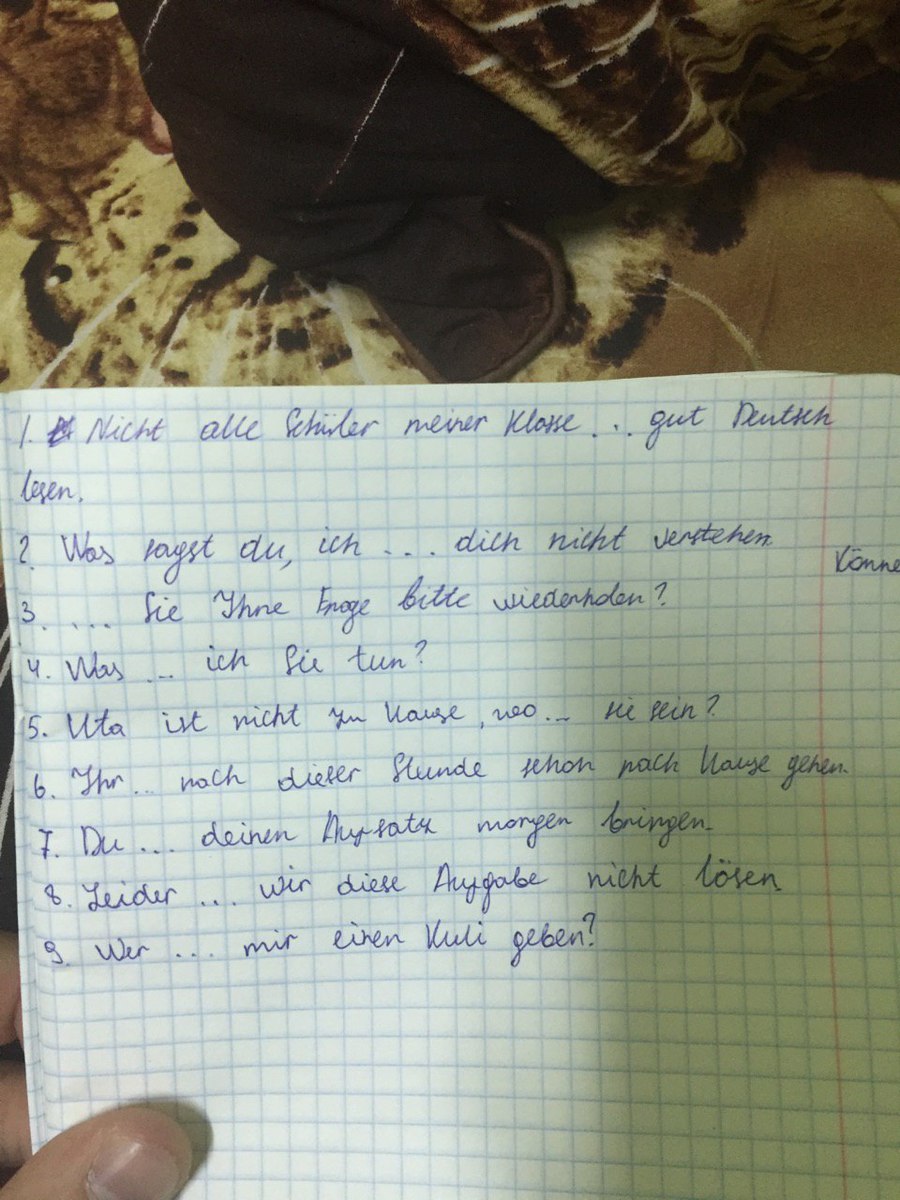 1. Nicht alle Schüler meiner Klasse ... gut Deutsch
lesen.
2. Was sagst du, ich .... dich nicht verstehen.
Könne
3. ... Sie Ihre Frage bitte wiederholen?
4. Was ... ich Sie tun?
5. Uta ist nicht zu Hause, wo... sie sein?
6. Ihr ... nach dieser Stunde schon nach Hause gehen.
7. Du ... deinen Aufsatz morgen bringen.
8. Leider .... wir diese Aufgabe nicht lösen
9. Wer ... mir einen Kuli geben?